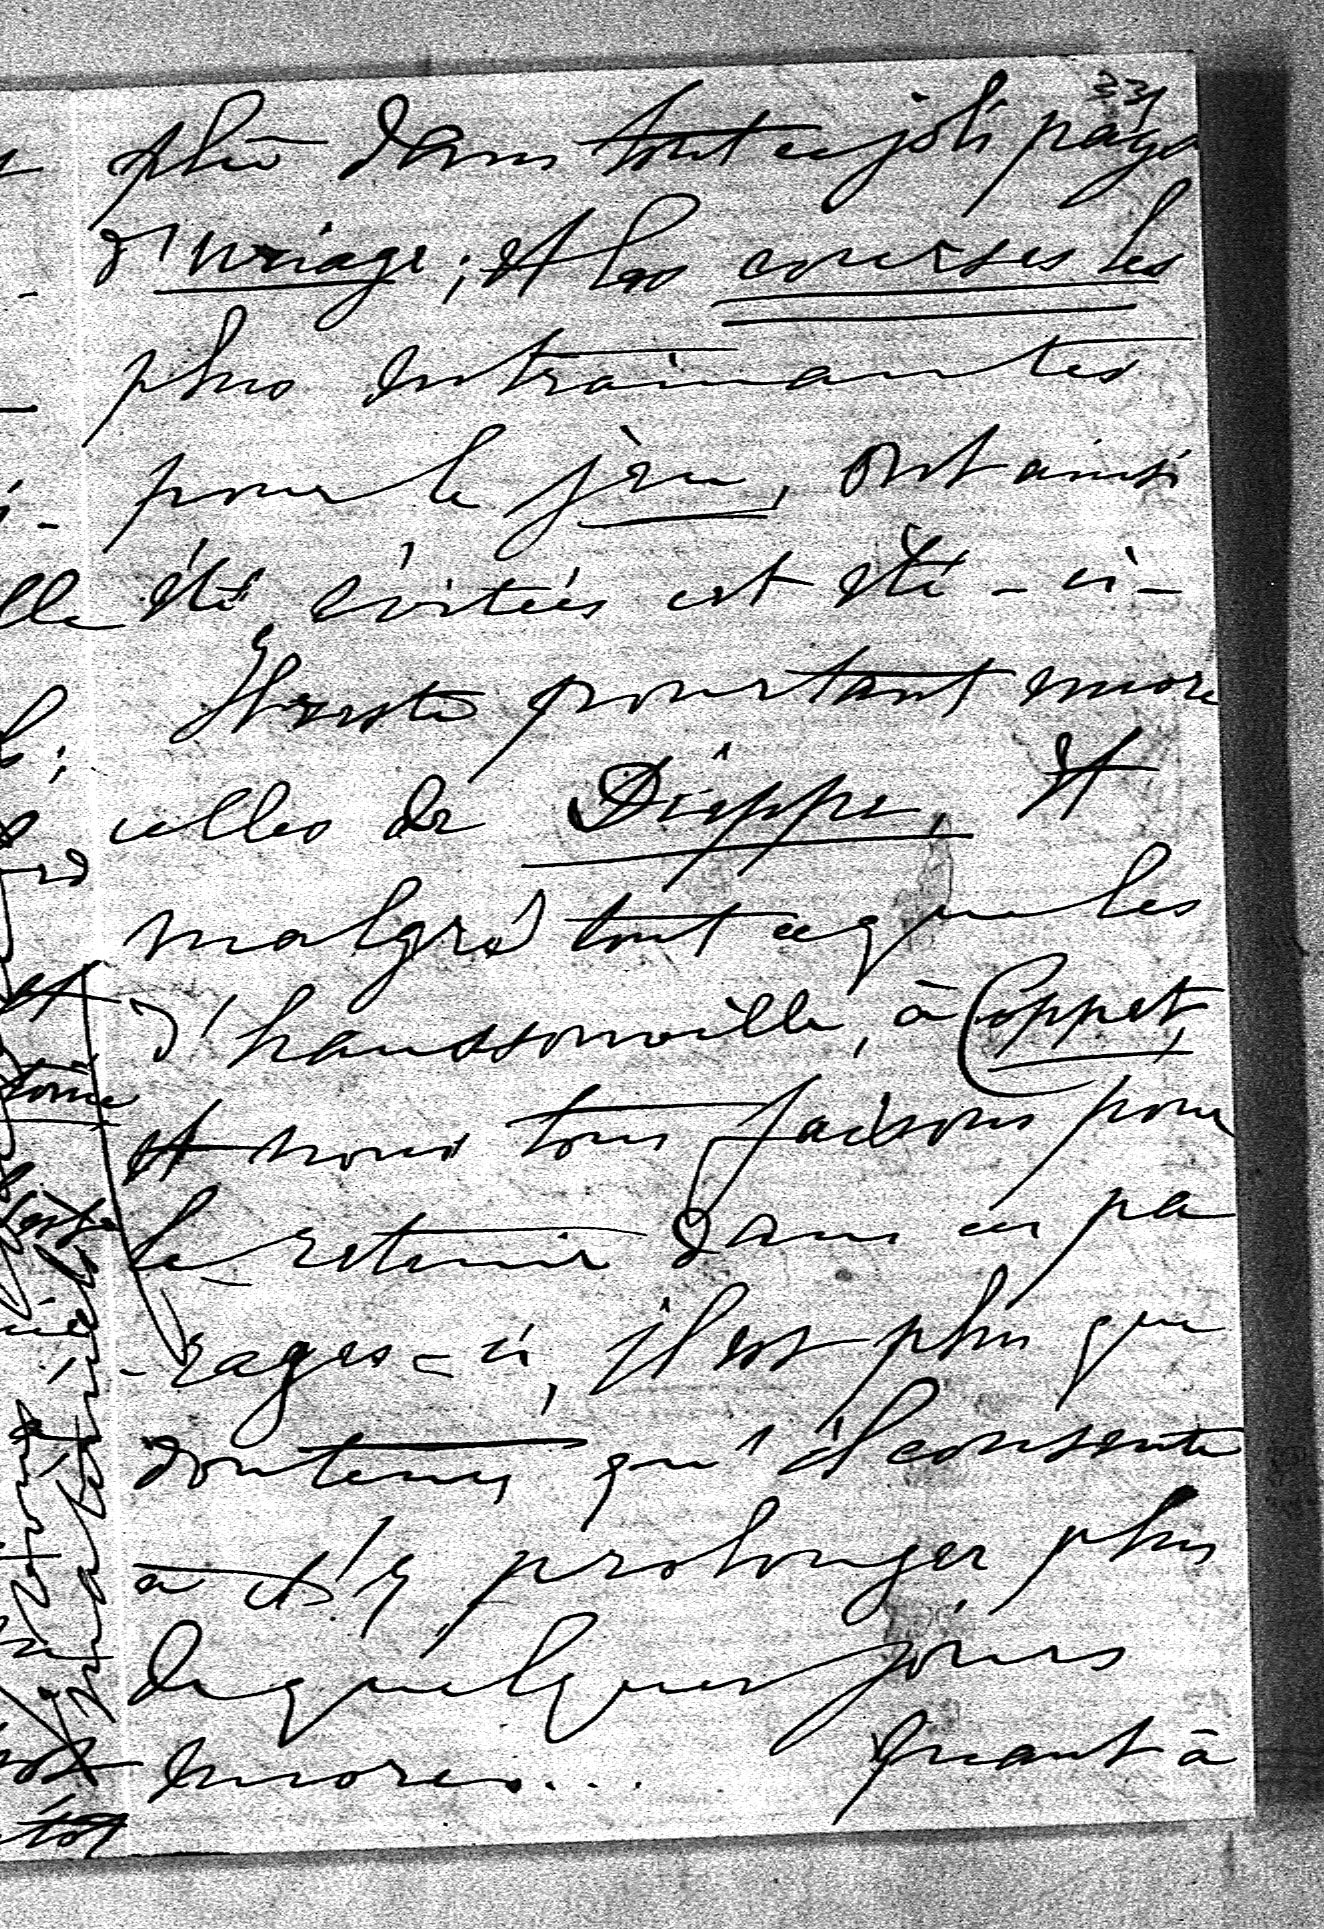 33
plû dans tout ce joli pays
d'Uriage; et les courses les
plus entrainantes
pour le jeu, ont ainsi
été évitées cet été-ci-
Il reste pourtant encore
celles de Dieppe, et
malgré tout ce que les
d'haussonville, à Coppet,
et nous tous faisons pour
le retenir dans ces pa
-rages-ci, il est plus que
douteux qu'il consente
à s'y prolonger plus
de quelques jours
encore.... Quant à